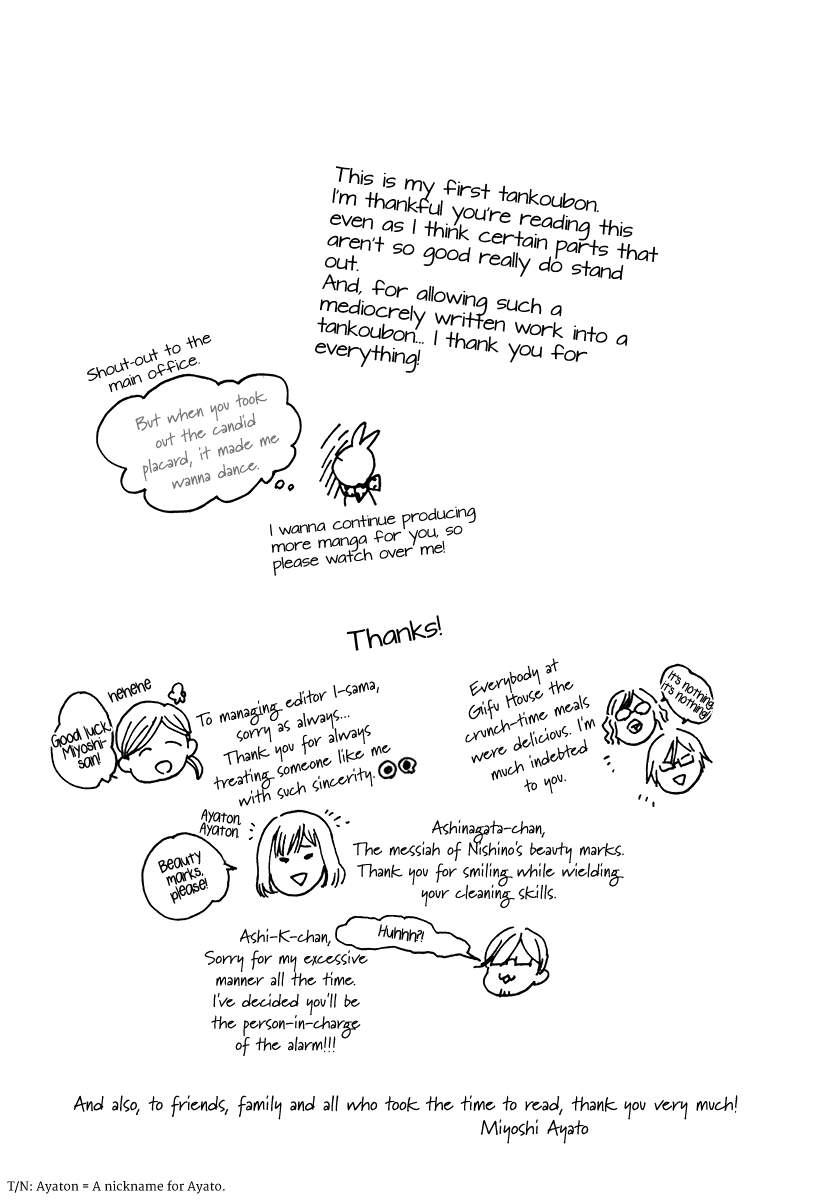 This is my first tankoubon.
I'm thankful you're reading this
even as I think certain parts that
aren't so good really do stand
out.
And, for allowing such a
mediocrely written work into a
tankoubon... I thank you for
everything!
Shout-out to the
main office.
But when you took
out the candid
placard, it made me
wanna dance.
I wanna continue producing
more manga for you, so
please watch over me!
Thanks!
hehehe
Good luck,
Miyoshi-
san!
To managing editor I-sama,
sorry as always...
Thank you for always
treating someone like me
with such sincerity.
Everybody at
Gifu House the
crunch-time meals
were delicious. I'm
much indebted
to you.
It's nothing,
it's nothing!
Ayaton
Ayaton
Beauty
marks,
please!
Ashinagata-chan,
The messiah of Nishino's beauty marks.
Thank you for smiling while wielding
your cleaning skills.
Ashi-K-chan,
Sorry for my excessive
manner all the time.
I've decided you'll be
the person-in-charge
of the alarm!!!
Huhhh?!
And also, to friends, family and all who took the time to read, thank you very much!
Miyoshi Ayato
T/N: Ayaton = A nickname for Ayato.